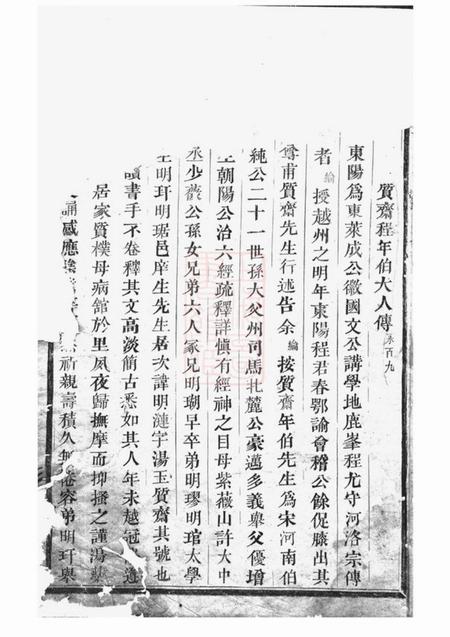 質齋程年伯大人傳 永百九
東陽爲東萊成公徽國文公講學地鹿峯程尤守河洛宗傳
者編授越州之明年東陽程君春鄂諭會稽公餘促膝出其
尊甫質齋先生行述告余編按質齋年伯先生爲宋河南伯
純公二十一世孫大父州司馬北麓公豪邁多義舉父優增
生朝陽公治六經疏釋詳愼有經神之目母紫薇山許大中
丞少薇公孫女兄弟六人冢兄明瑚早卒弟明璆明琯太學
生明玕明琚邑庠生先生居次諱明漣字湯玉質齋其號也
讀書手不卷釋其文高淡簡古悉如其人年未越冠
居家質樸母病館於里夙夜歸撫摩而抑搔之謹湯
誦感應 祈親壽積久無倦容弟明玕舉